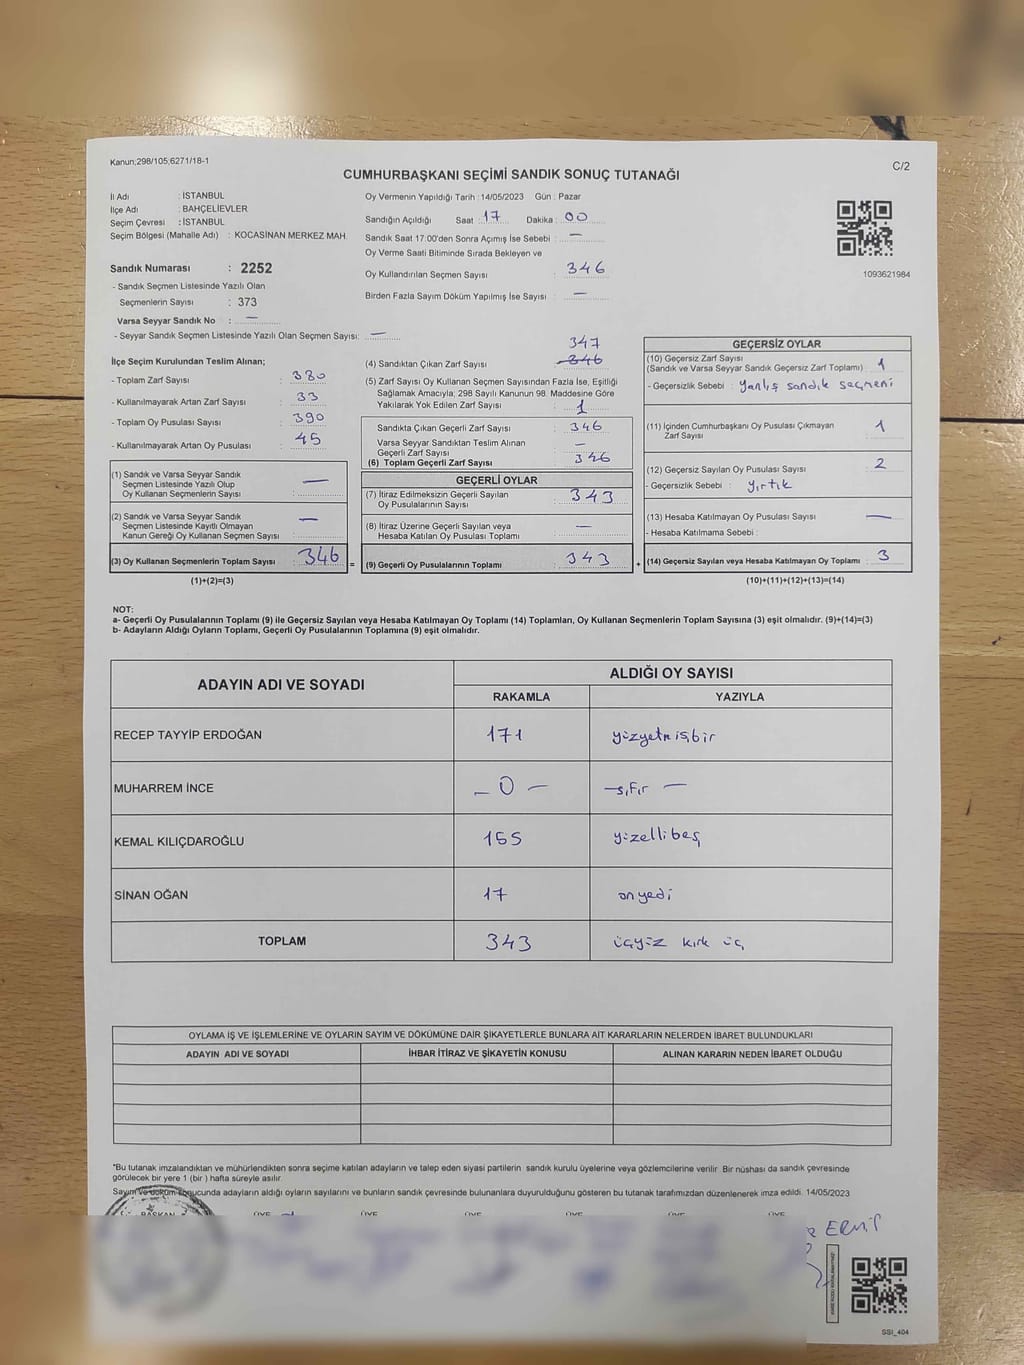 Kanun;298/105;6271/18-1
C/2
CUMHURBAŞKANI SEÇİMİ SANDIK SONUÇ TUTANAĞI
İl Adı : İSTANBUL
İlçe Adı : BAHÇELİEVLER
Seçim Çevresi : İSTANBUL
Seçim Bölgesi (Mahalle Adı) : KOCASİNAN MERKEZ MAH.
Sandık Numarası : 2252
- Sandık Seçmen Listesinde Yazılı Olan
Seçmenlerin Sayısı : 373
Varsa Seyyar Sandık No : —
- Seyyar Sandık Seçmen Listesinde Yazılı Olan Seçmen Sayısı: —
Oy Vermenin Yapıldığı Tarih :14/05/2023 Gün : Pazar
Sandığın Açıldığı Saat : 17 Dakika : 00
Sandık Saat 17.00'den Sonra Açımış İse Sebebi : —
Oy Verme Saati Bitiminde Sırada Bekleyen ve
Oy Kullandırılan Seçmen Sayısı : 346
Birden Fazla Sayım Döküm Yapılmış İse Sayısı : —
1093621984
İlçe Seçim Kurulundan Teslim Alınan;
- Toplam Zarf Sayısı : 380
- Kullanılmayarak Artan Zarf Sayısı : 33
- Toplam Oy Pusulası Sayısı : 390
- Kullanılmayarak Artan Oy Pusulası : 45
(1) Sandık ve Varsa Seyyar Sandık
Seçmen Listesinde Yazılı Olup
Oy Kullanan Seçmenlerin Sayısı : —
(2) Sandık ve Varsa Seyyar Sandık
Seçmen Listesinde Kayıtlı Olmayan
Kanun Gereği Oy Kullanan Seçmen Sayısı : —
(3) Oy Kullanan Seçmenlerin Toplam Sayısı : 346 =
(1)+(2)=(3)
347
(4) Sandıktan Çıkan Zarf Sayısı : 346
(5) Zarf Sayısı Oy Kullanan Seçmen Sayısından Fazla İse, Eşitliği
Sağlamak Amacıyla; 298 Sayılı Kanunun 98. Maddesine Göre
Yakılarak Yok Edilen Zarf Sayısı : 1
Sandıkta Çıkan Geçerli Zarf Sayısı : 346
Varsa Seyyar Sandıktan Teslim Alınan
Geçerli Zarf Sayısı : —
(6) Toplam Geçerli Zarf Sayısı : 346
GEÇERLİ OYLAR
(7) İtiraz Edilmeksizin Geçerli Sayılan
Oy Pusulalarının Sayısı : 343
(8) İtiraz Üzerine Geçerli Sayılan veya
Hesaba Katılan Oy Pusulası Toplamı : —
(9) Geçerli Oy Pusulalarının Toplamı : 343 +
GEÇERSİZ OYLAR
(10) Geçersiz Zarf Sayısı
(Sandık ve Varsa Seyyar Sandık Geçersiz Zarf Toplamı) : 1
- Geçersizlik Sebebi : Yanlış sandık seçmeni
(11) İçinden Cumhurbaşkanı Oy Pusulası Çıkmayan
Zarf Sayısı : 1
(12) Geçersiz Sayılan Oy Pusulası Sayısı : 2
- Geçersizlik Sebebi : Yırtık
(13) Hesaba Katılmayan Oy Pusulası Sayısı : —
- Hesaba Katılmama Sebebi :
(14) Geçersiz Sayılan veya Hesaba Katılmayan Oy Toplamı : 3
(10)+(11)+(12)+(13)=(14)
NOT:
a- Geçerli Oy Pusulalarının Toplamı (9) ile Geçersiz Sayılan veya Hesaba Katılmayan Oy Toplamı (14) Toplamları, Oy Kullanan Seçmenlerin Toplam Sayısına (3) eşit olmalıdır. (9)+(14)=(3)
b- Adayların Aldığı Oyların Toplamı, Geçerli Oy Pusulalarının Toplamına (9) eşit olmalıdır.
ADAYIN ADI VE SOYADI
ALDIĞI OY SAYISI
RAKAMLA YAZIYLA
RECEP TAYYİP ERDOĞAN 171 yüzyetmişbir
MUHARREM İNCE — 0 — — sıfır —
KEMAL KILIÇDAROĞLU 155 yüzellibeş
SİNAN OĞAN 17 onyedi
TOPLAM 343 üçyüz kırk üç
OYLAMA İŞ VE İŞLEMLERİNE VE OYLARIN SAYIM VE DÖKÜMÜNE DAİR ŞİKAYETLERLE BUNLARA AİT KARARLARIN NELERDEN İBARET BULUNDUKLARI
ADAYIN ADI VE SOYADI İHBAR İTİRAZ VE ŞİKAYETİN KONUSU ALINAN KARARIN NEDEN İBARET OLDUĞU
*Bu tutanak imzalandıktan ve mühürlendikten sonra seçime katılan adayların ve talep eden siyasi partilerin sandık kurulu üyelerine veya gözlemcilerine verilir. Bir nüshası da sandık çevresinde
görülecek bir yere 1 (bir) hafta süreyle asılır.
Sayım ve döküm sonucunda adayların aldığı oyların sayılarını ve bunların sandık çevresinde bulunanlara duyurulduğunu gösteren bu tutanak tarafımızdan düzenlenerek imza edildi. 14/05/2023
BAŞKAN ÜYE ÜYE ÜYE ÜYE ÜYE ÜYE
SSİ_404